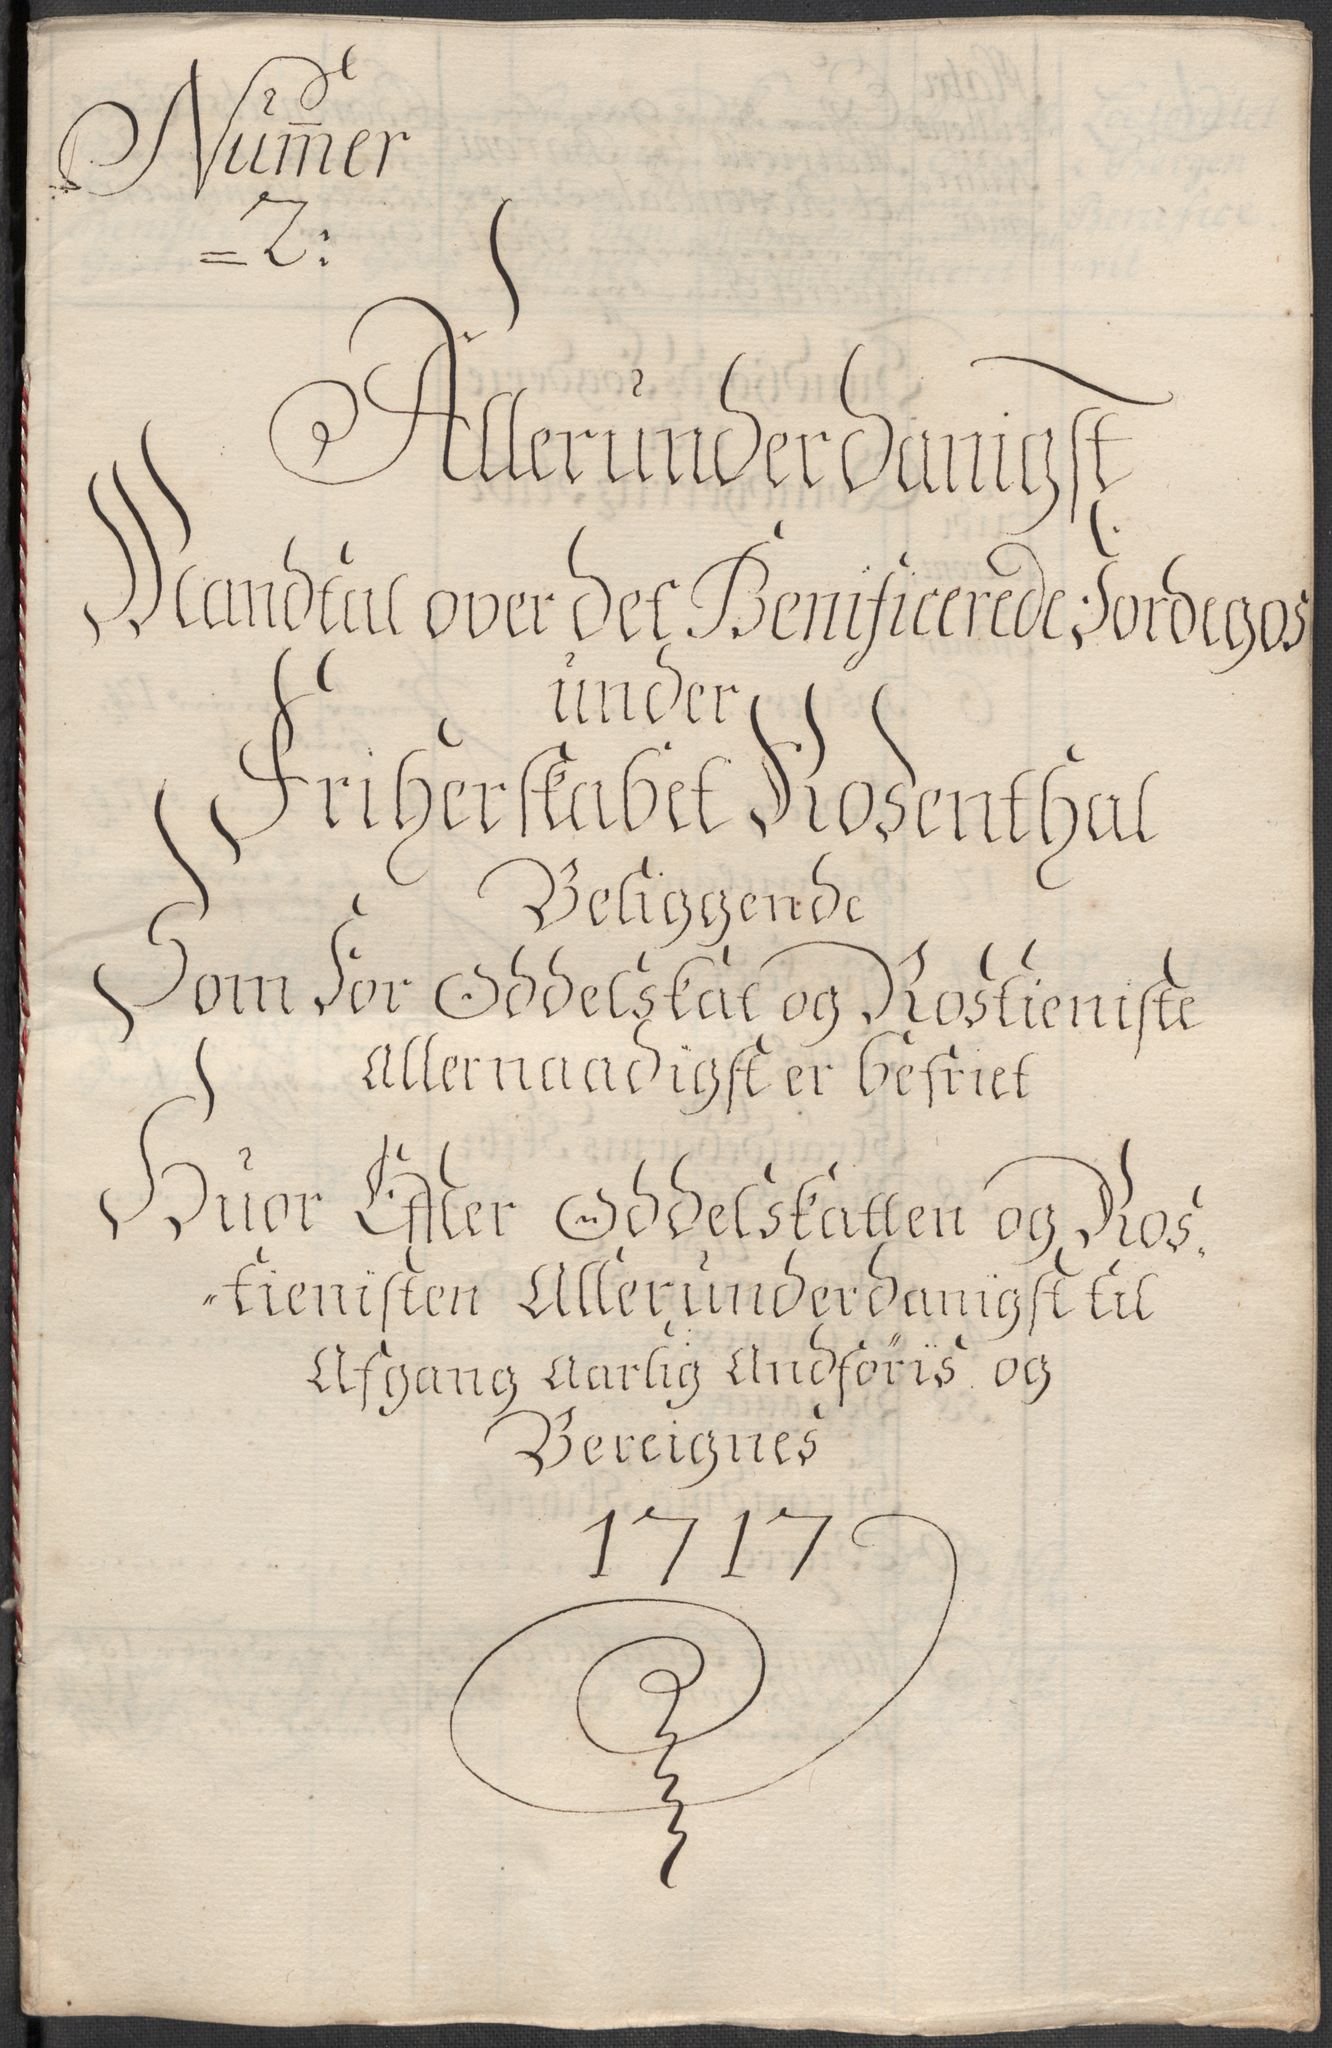 Numer
=2:
Allerunderdanigst
Mandtal over det Benificerede Jordegos
under
Friherskabet Rosenthal
Beliggende
Som for Oddelskat og Rostieniste
Allernaadigst er befriet
Huor Effter Oddelskatten og Ros„
„tienisten Allerunderdanigst til
Afgang Aarlig Andføris og
Bereignes
1717